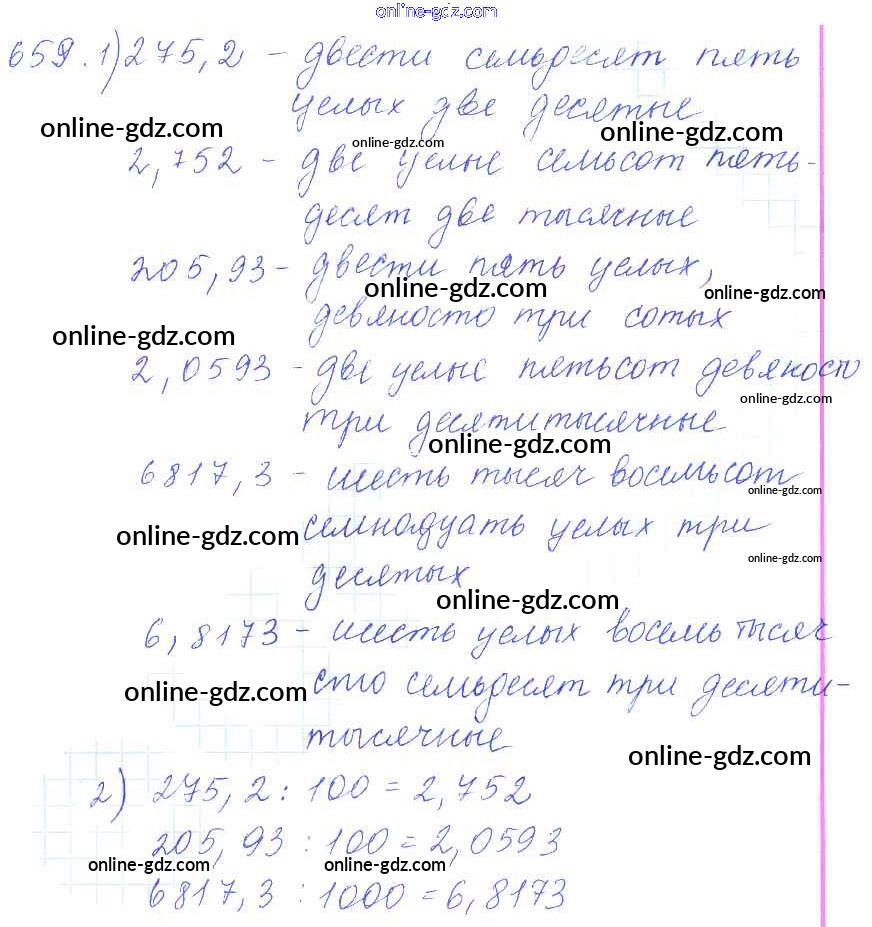 online-gdz.com
659. 1) 275,2 - двести семьдесят пять
целых две десятые
online-gdz.com online-gdz.com online-gdz.com
2,752 - две целые семьсот пять-
десят две тысячные
205,93 - двести пять целых,
online-gdz.com online-gdz.com
девяносто три сотых
online-gdz.com
2,0593 - две целые пятьсот девяносто
online-gdz.com
три десятитысячные
online-gdz.com
6817,3 - шесть тысяч восемьсот
online-gdz.com
семнадцать целых три
online-gdz.com
online-gdz.com
десятых
online-gdz.com
6,8173 - шесть целых восемь тысяч
сто семьдесят три десяти-
online-gdz.com
тысячные
online-gdz.com
2) 275,2 : 100 = 2,752
205,93 : 100 = 2,0593
online-gdz.com online-gdz.com
6817,3 : 1000 = 6,8173